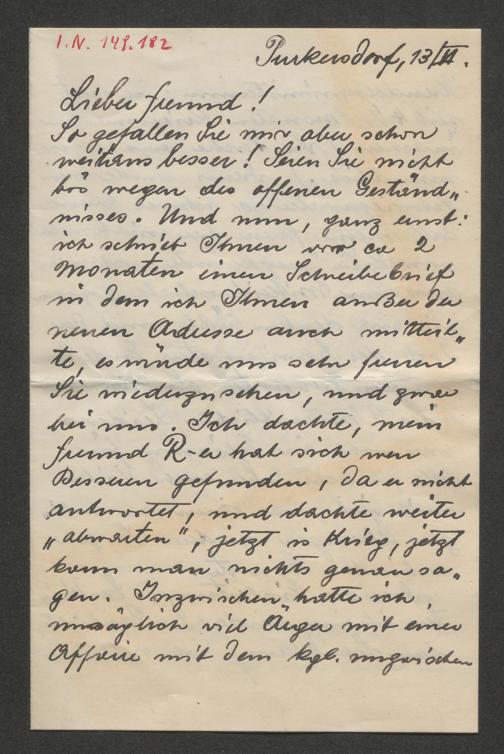 I.N. 149.182
Purkersdorf, 13/VI.
Lieber Freund!
So gefallen Sie mir aber schon
weitaus besser! Seien Sie nicht
bös wegen des offenen Geständ„
nisses. Und nun, ganz ernst:
ich schrieb Ihnen vor ca 2
Monaten einen Schreibebrief
in dem ich Ihnen außer der
neuen Adresse auch mitteil„
te, es würde uns sehr freuen
Sie wiederzusehen, und zwar
bei uns. Ich dachte, mein
Freund R-er hat sich was
Besseres gefunden, da er nicht
antwortet, und dachte weiter
„abwarten", jetzt is Krieg, jetzt
kann man nichts genau sa„
gen. Inzwischen hatte ich
unsäglich viel Ärger mit einer
Affaire mit dem kgl. ungarischen